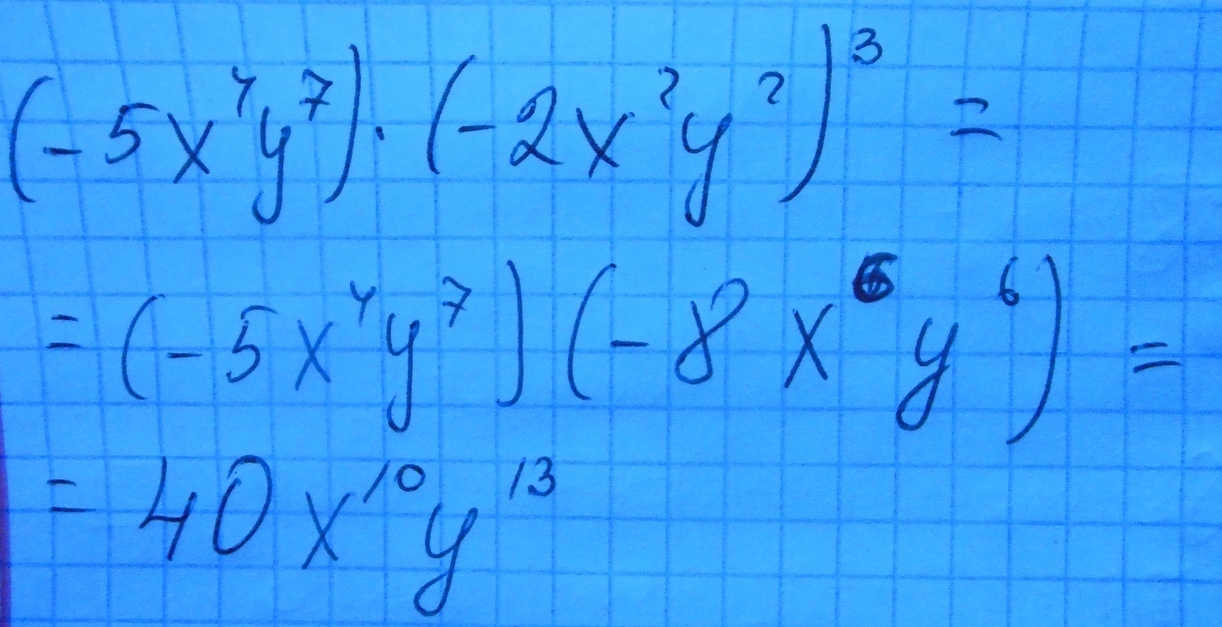 (-5x⁴y⁷)·(-2x²y²)³ =
= (-5x⁴y⁷)(-8x⁶y⁶) =
= 40x¹⁰y¹³